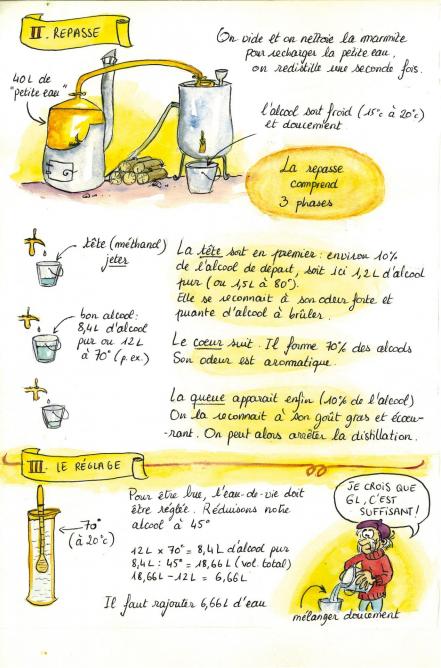 II. REPASSE
On vide et on nettoie la marmite
pour recharger la petite eau,
on redistille une seconde fois.
40 L de
"petite eau"
l'alcool sort froid (15°c à 20°c)
et doucement.
La repasse
comprend
3 phases
tête (méthanol)
jeter
La tête sort en premier : environ 10%
de l'alcool de départ, soit ici 1,2 L d'alcool
pur (ou 1,5 L à 80°).
Elle se reconnait à son odeur forte et
puante d'alcool à brûler.
bon alcool:
8,4 L d'alcool
pur ou 12 L
à 70° (p. ex.)
Le coeur suit. Il forme 70% des alcools
Son odeur est aromatique.
La queue apparait enfin (10% de l'alcool)
On la reconnait à son goût gras et écœu-
-rant. On peut alors arrêter la distillation.
III. LE RÉGLAGE
70°
(à 20°c)
Pour être bue, l'eau-de-vie doit
être réglée. Réduisons notre
alcool à 45°
12 L x 70° = 8,4 L d'alcool pur
8,4 L : 45° = 18,66 L (vol. total)
18,66 L - 12 L = 6,66 L
Il faut rajouter 6,66 L d'eau
JE CROIS QUE
6 L, C'EST
SUFFISANT!
mélanger doucement